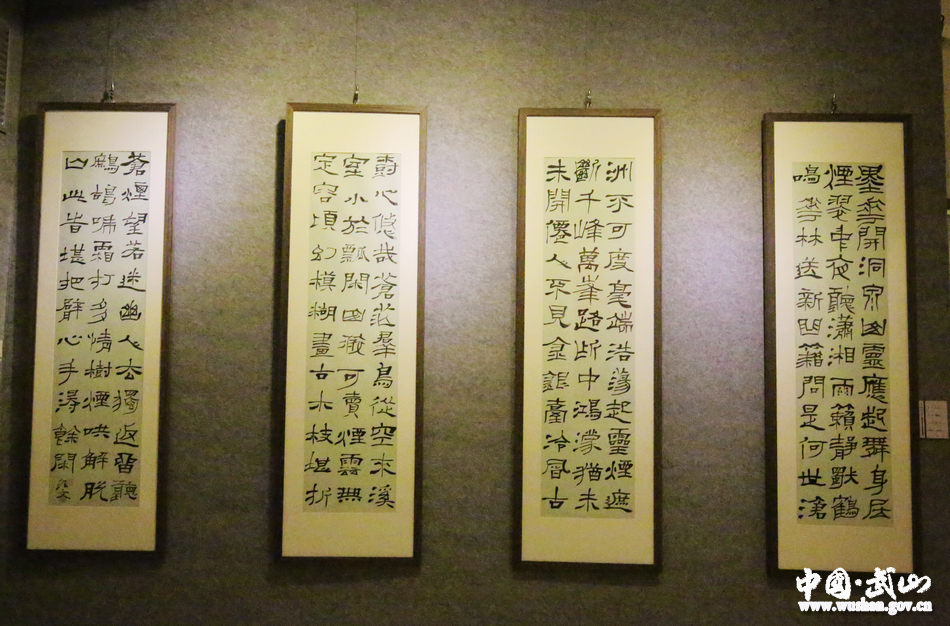 墨華開洞泉幽靈應起舞身居
煙翠中夜聽瀟湘雨籟靜獸鶴
鳴林送新籟問是何世滄
洲不可度毫端浩蕩起靈煙遮
斷千峰萬峯路此中鴻濛猶未
未開僊人不見金銀臺冷風古
心悠哉蒼茫羣鳥從空來溪
室小於瓢閑幽可賣煙雲無
定容頃幻模糊畫古木枝堪折
蒼煙望若迷幽人去獨返留聽
鷓鴣啼霜打多情樹煙哄解脫
山此皆堪把臂心手得餘閑
中国·武山
www.wushan.gov.cn